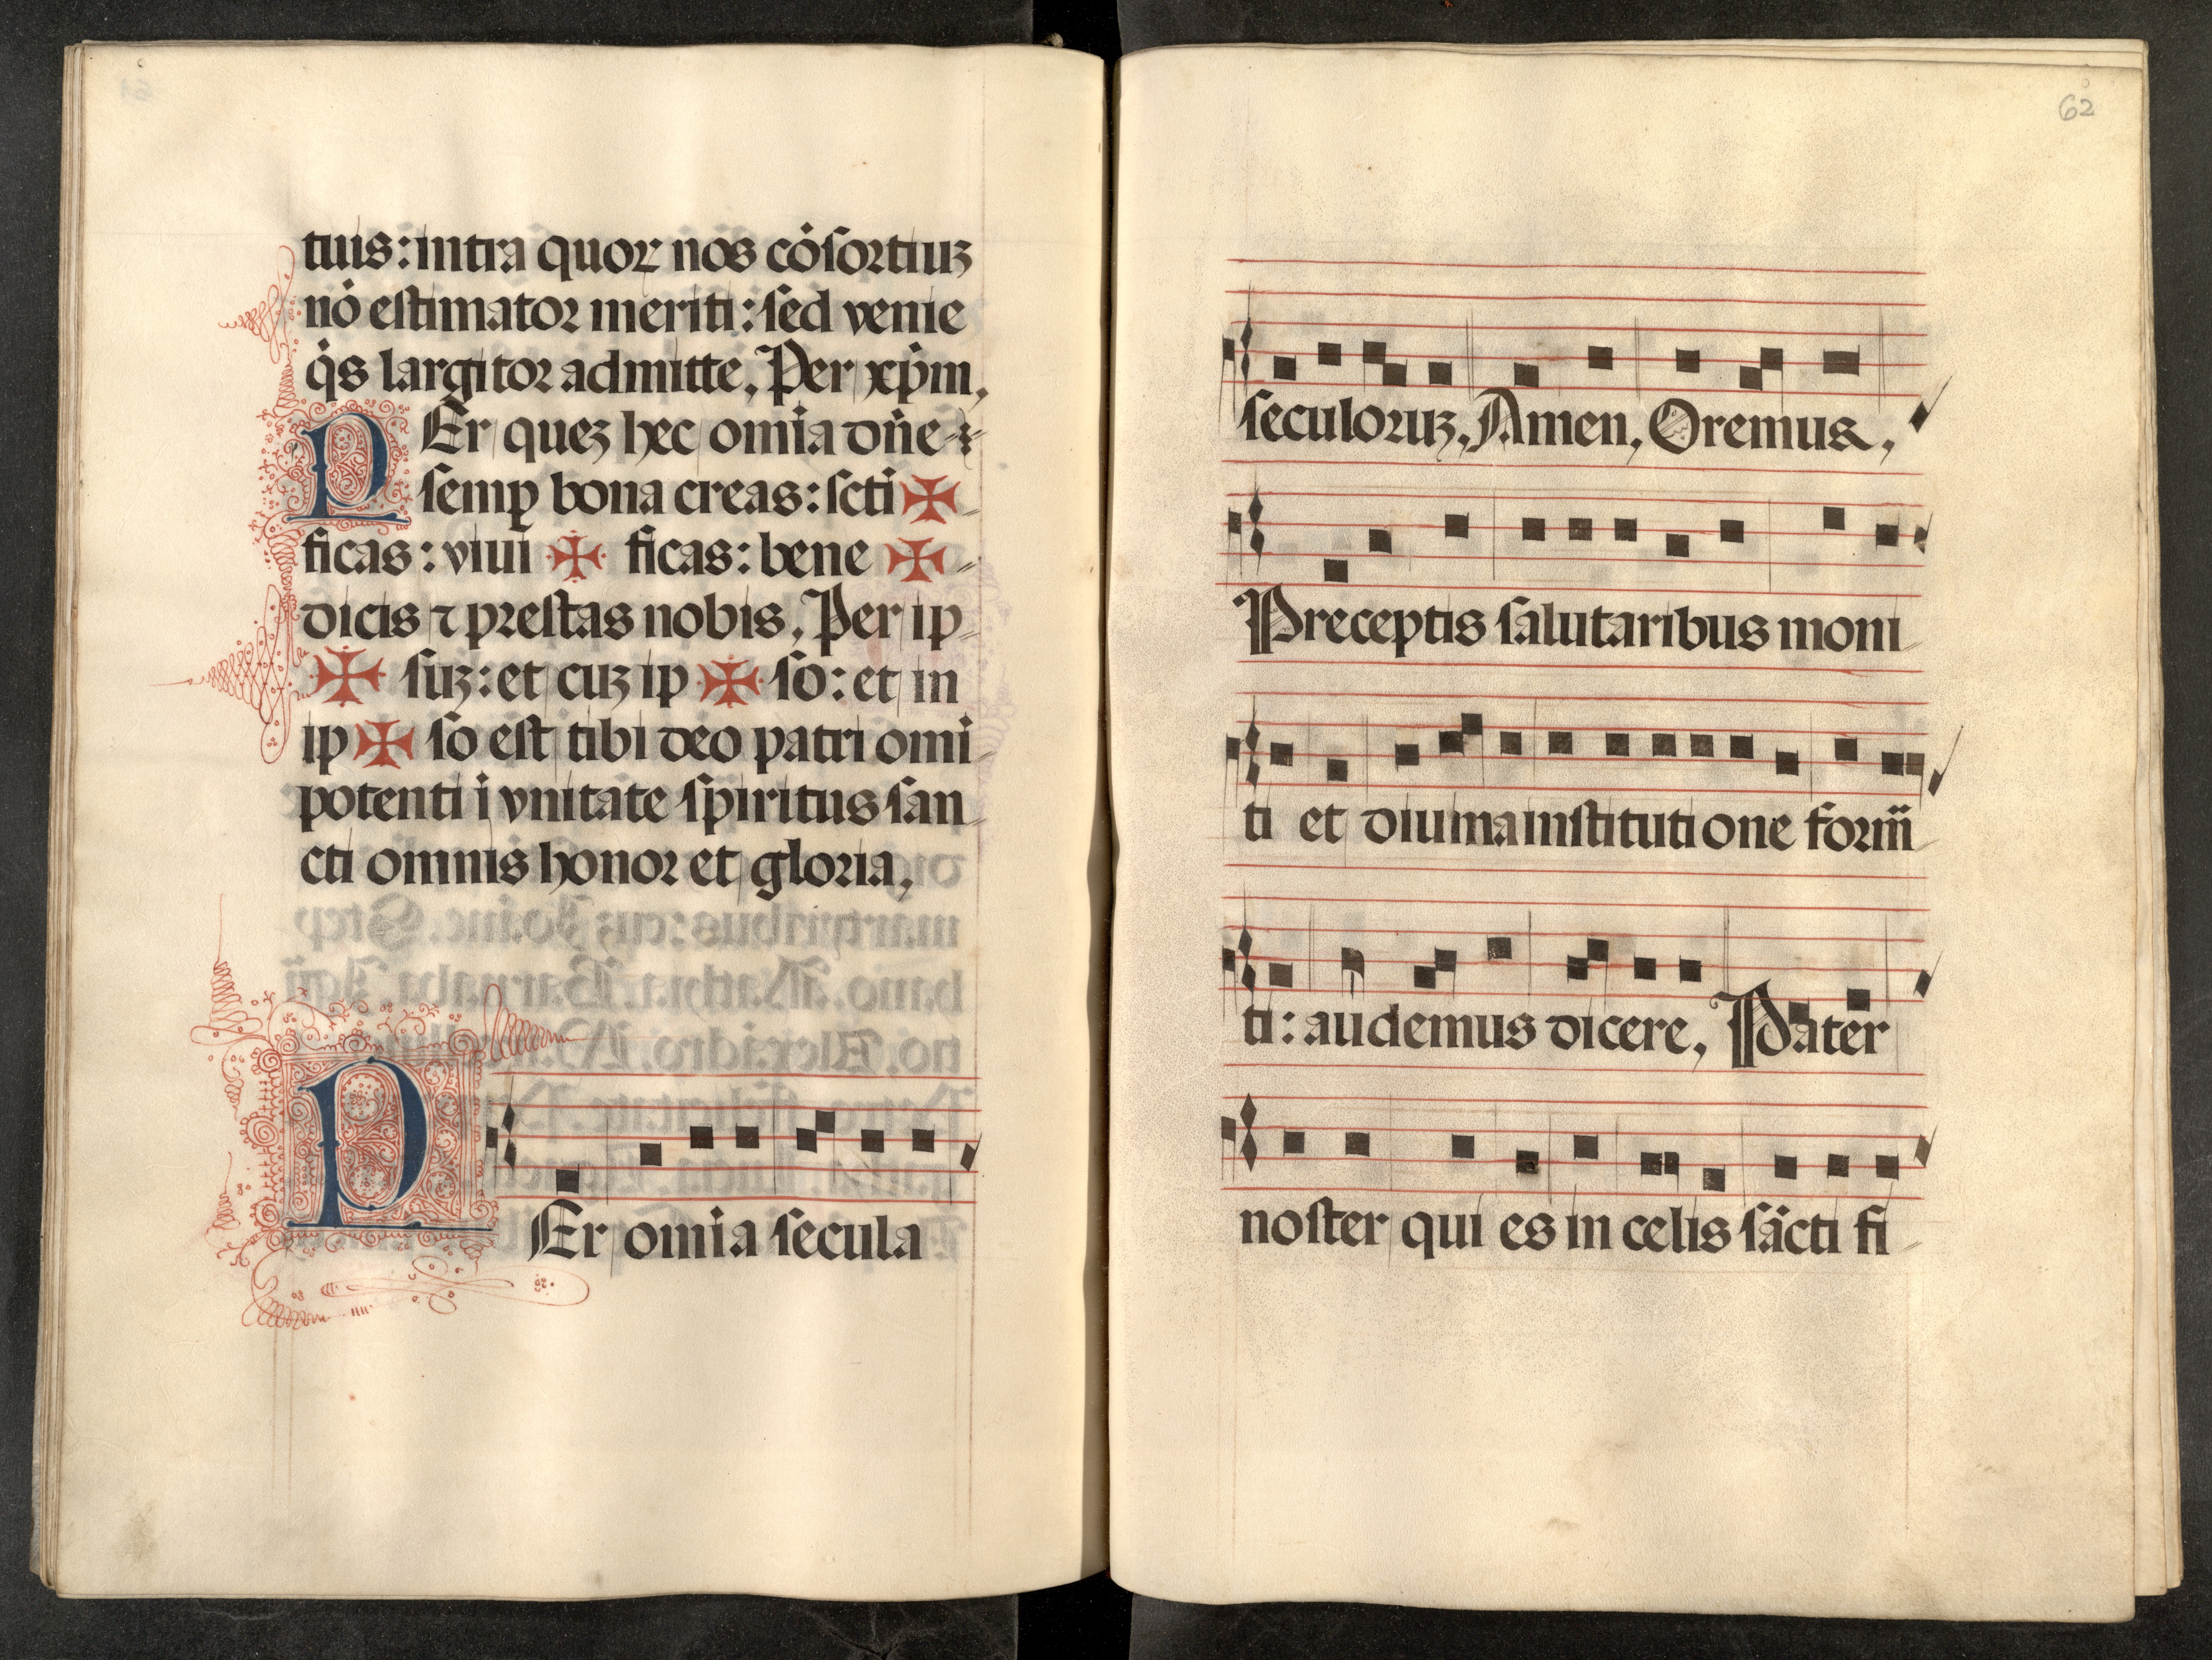 tuis: intra quoꝝ nos cósortiuꝫ
nó estimator meriti: sed venie
q̇s largitor admitte. Per xp̄m.
PEr queꝫ hec omīa dn̄e
semꝑ bona creas: scti ✠
ficas: viui ✠ ficas: bene ✠
dicis ⁊ prestas nobis. Per ip
✠ suꝫ: et cuꝫ ip ✠ so: et in
ip ✠ so est tibi deo patri omi
potenti ī vnitate spiritus san
cti omnis honor et gloria.
PEr omīa secula
62
seculoruꝫ. Amen. Oremus.
Preceptis salutaribus moni
ti et diuina institutione form̄
ti: audemus dicere. Pater
noster qui es in celis sācti fi